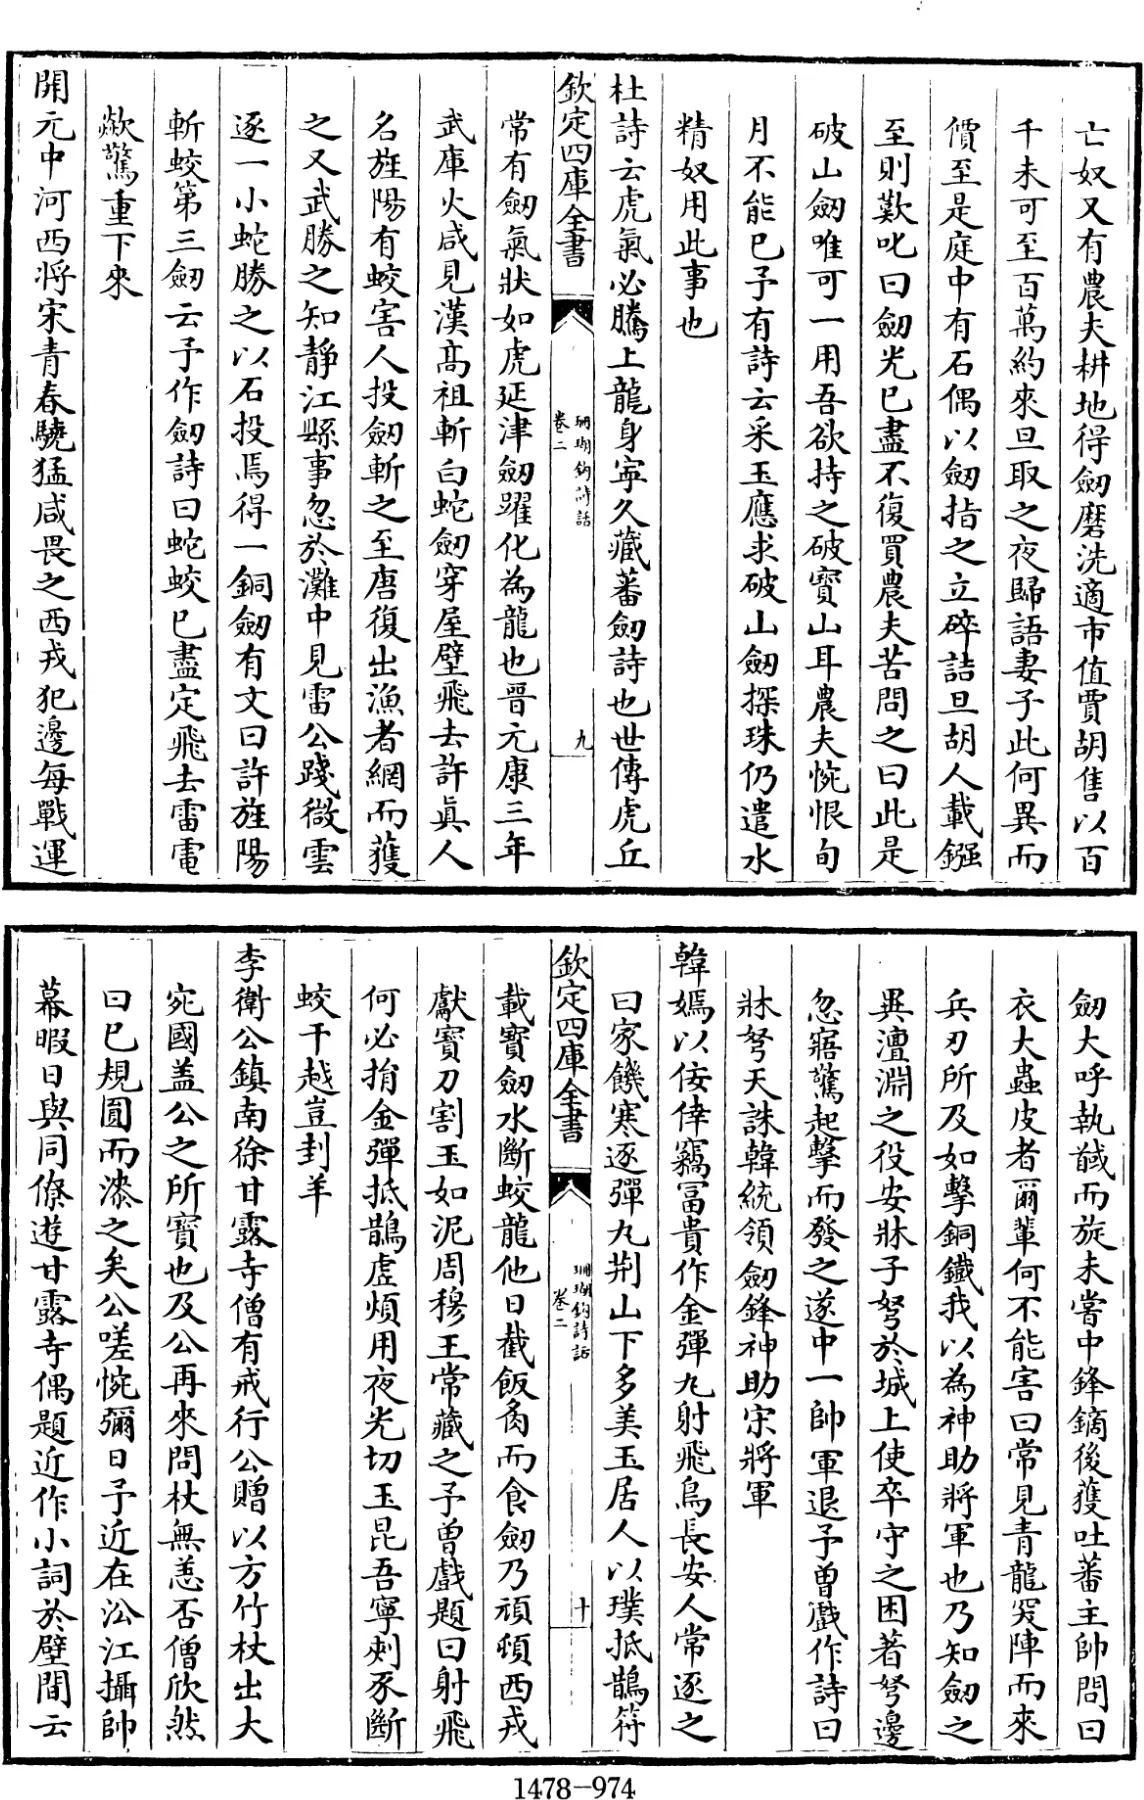 亡奴又有農夫耕地得劒磨洗適市值賈胡售以百
千未可至百萬約來旦取之夜歸語妻子此何異而
價至是庭中有石偶以劒指之立碎詰旦胡人載鏹
至則歎叱曰劒光已盡不復買農夫苦問之曰此是
破山劒唯可一用吾欲持之破寳山耳農夫惋恨旬
月不能已予有詩云采玉應求破山劒探珠仍遣水
精奴用此事也
杜詩云虎氣必騰上龍身寜久藏蕃劒詩也世傳虎丘
欽定四庫全書
珊瑚鈎詩話
卷二
九
常有劒氣狀如虎延津劒躍化為龍也晋元康三年
武庫火咸見漢髙祖斬白蛇劒穿屋壁飛去許真人
名旌陽有蛟害人投劒斬之至唐復出漁者網而獲
之又武勝之知静江縣事忽於灘中見雷公踐微雲
逐一小蛇勝之以石投焉得一銅劒有文曰許旌陽
斬蛟第三劒云予作劒詩曰蛇蛟已盡定飛去雷電
歘驚重下來
開元中河西將宋青春驍猛咸畏之西戎犯邊每戰運
劒大呼執馘而旋未嘗中鋒鏑後獲吐蕃主帥問曰
衣大蟲皮者爾輩何不能害曰常見青龍突陣而來
兵刃所及如擊銅鐵我以為神助將軍也乃知劒之
異澶淵之役安牀子弩於城上使卒守之困著弩邊
忽寤驚起擊而發之遂中一帥軍退予曾戲作詩曰
牀弩天誅韓統領劒鋒神助宋將軍
韓嫣以佞倖竊富貴作金彈丸射飛鳥長安人常逐之
曰家饑寒逐彈丸荆山下多美玉居人以璞抵鵲符
欽定四庫全書
珊瑚鈎詩話
卷二
十
載寳劒水斷蛟龍他日截飯肏而食劒乃頑頓西戎
獻寳刀割玉如泥周穆王常藏之予曽戲題曰射飛
何必捐金彈抵鵲虚煩用夜光切玉昆吾寜剌豕斷
蛟干越豈刲羊
李衛公鎮南徐甘露寺僧有戒行公贈以方竹杖出大
宛國盖公之所寳也及公再來問杖無恙否僧欣然
曰已規圓而漆之矣公嗟惋彌日予近在沿江攝帥
幕暇日與同僚遊甘露寺偶題近作小詞於壁間云
1478-974